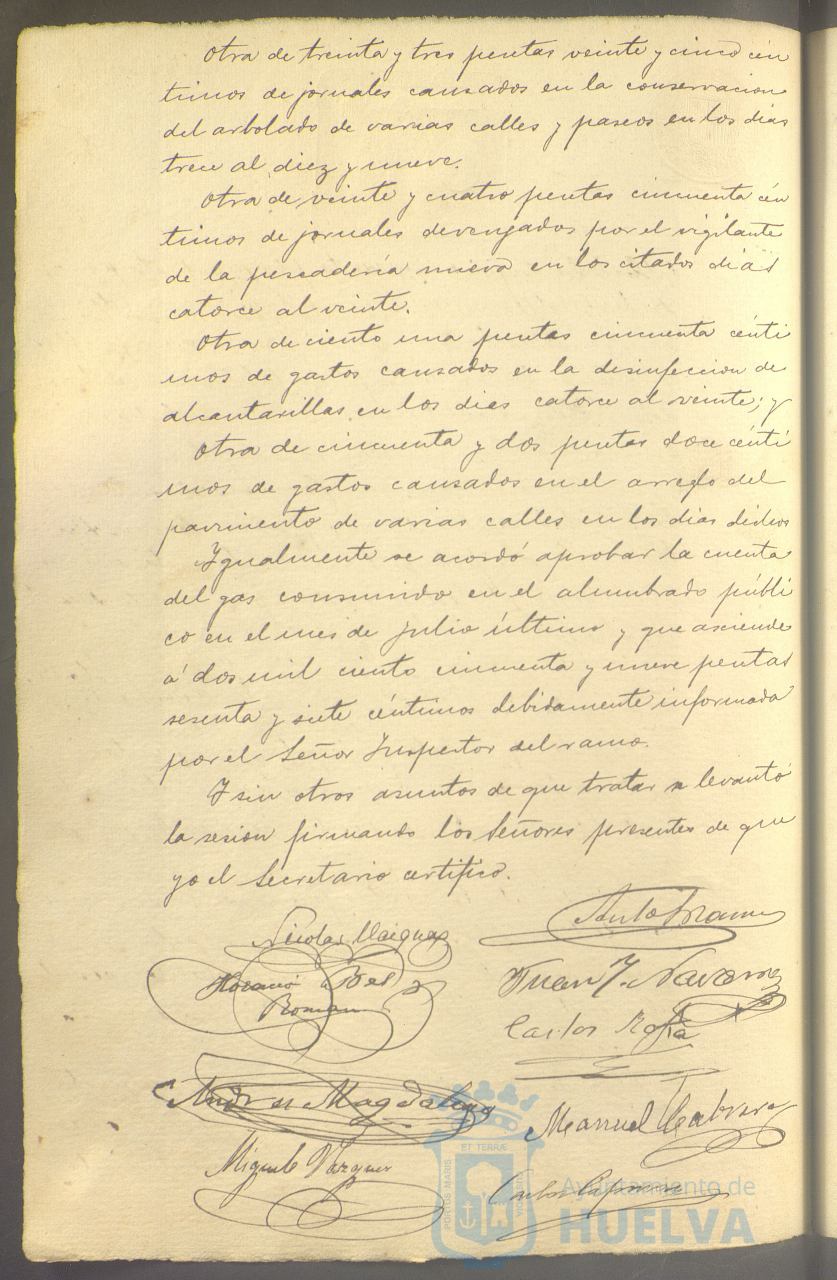 Otra de treinta y tres pesetas veinte y cinco cén
timos de jornales causados en la conservacion
del arbolado de varias calles y paseos en los dias
trece al diez y nueve.
Otra de veinte y cuatro pesetas cincuenta cén
timos de jornales devengados por el vigilante
de la pescadería nueva en los citados dias
catorce al veinte.
Otra de ciento una pesetas cincuenta cénti
mos de gastos causados en la desinfeccion de
alcantarillas en los dias catorce al veinte; y
Otra de cincuenta y dos pesetas doce cénti
mos de gastos causados en el arreglo del
pavimento de varias calles en los dias dichos
Igualmente se acordó aprobar la cuenta
del gas consumido en el alumbrado públi
co en el mes de Julio último y que asciende
á dos mil ciento cincuenta y nueve pesetas
sesenta y siete céntimos debidamente informada
por el Señor Inspector del ramo.
Y sin otros asuntos de que tratar se levantó
la sesion firmando los Señores presentes de que
yo el Secretario certifico.
Nicolas
Horacio Bel
Roman
Juan J. Navarro
Carlos
Andres Magdaleno
Manuel Cabrera
Miguel Vazquez
PORTUS MARIS ET TERRÆ CUSTODIA
Ayuntamiento de
HUELVA